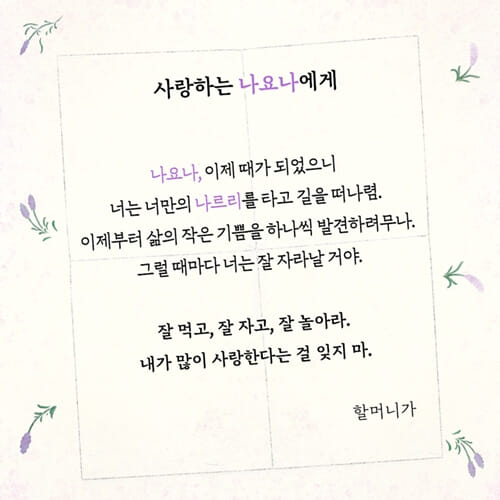 사랑하는 나요나에게
나요나, 이제 때가 되었으니
너는 너만의 나르리를 타고 길을 떠나렴.
이제부터 삶의 작은 기쁨을 하나씩 발견하려무나.
그럴 때마다 너는 잘 자라날 거야.
잘 먹고, 잘 자고, 잘 놀아라.
내가 많이 사랑한다는 걸 잊지 마.
할머니가